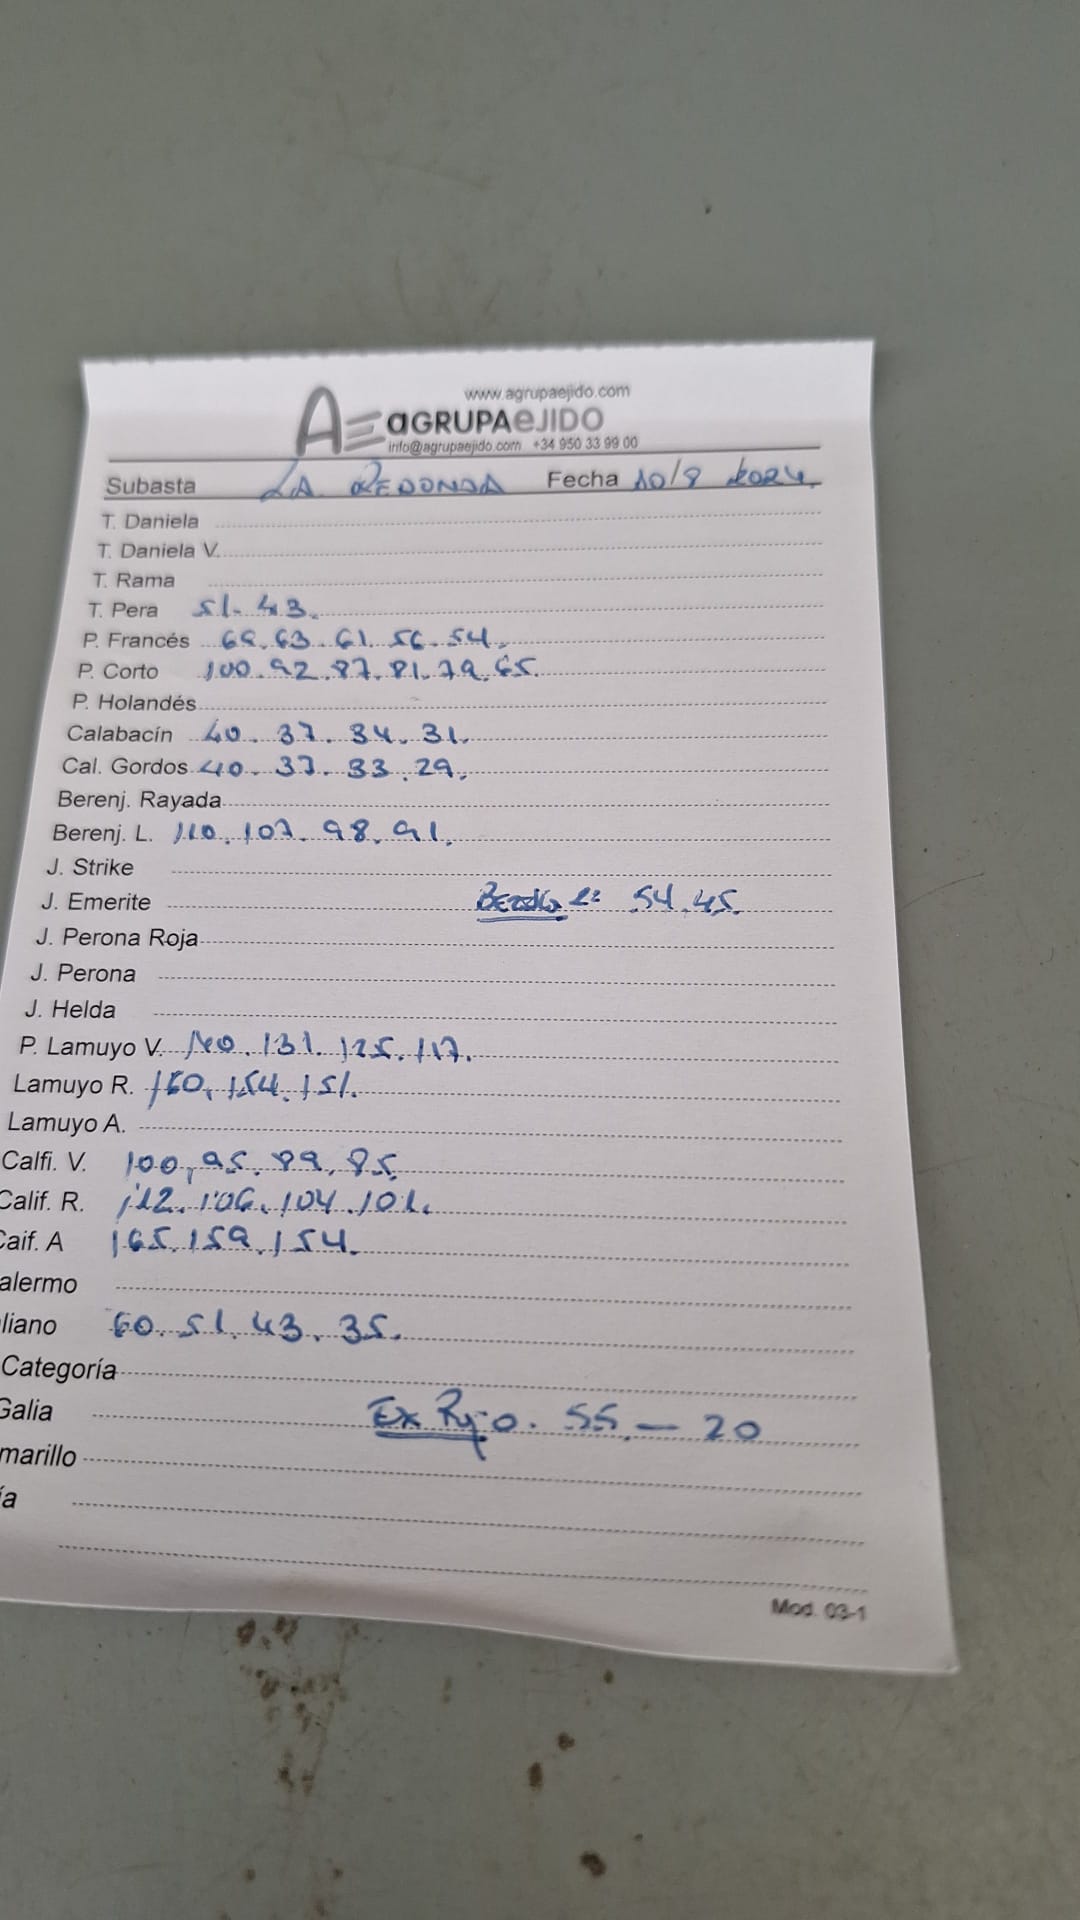 www.agrupaejido.com
AE aGRUPAeJIDO
info@agrupaejido.com +34 950 33 99 00
Subasta LA REDONDA Fecha 10/8 2024.
T. Daniela
T. Daniela V.
T. Rama
T. Pera 51. 43.
P. Francés 68. 63. 61. 56. 54.
P. Corto 100. 92. 87. 81. 79. 65.
P. Holandés
Calabacín 40. 37. 34. 31.
Cal. Gordos 40. 37. 33. 29.
Berenj. Rayada
Berenj. L. 110. 107. 98. 91.
J. Strike
J. Emerite 2: 54. 45.
J. Perona Roja
J. Perona
J. Helda
P. Lamuyo V. 140. 131. 125. 117.
Lamuyo R. 160. 154. 151.
Lamuyo A.
Calfi. V. 100, 95. 89. 85.
Calif. R. 112. 106. 104. 101.
Caif. A 165. 159. 154.
alermo
liano 60. 51. 43. 35.
Categoría
Galia Ex Rojo. 55. — 20
marillo
ía
Mod. 03-1